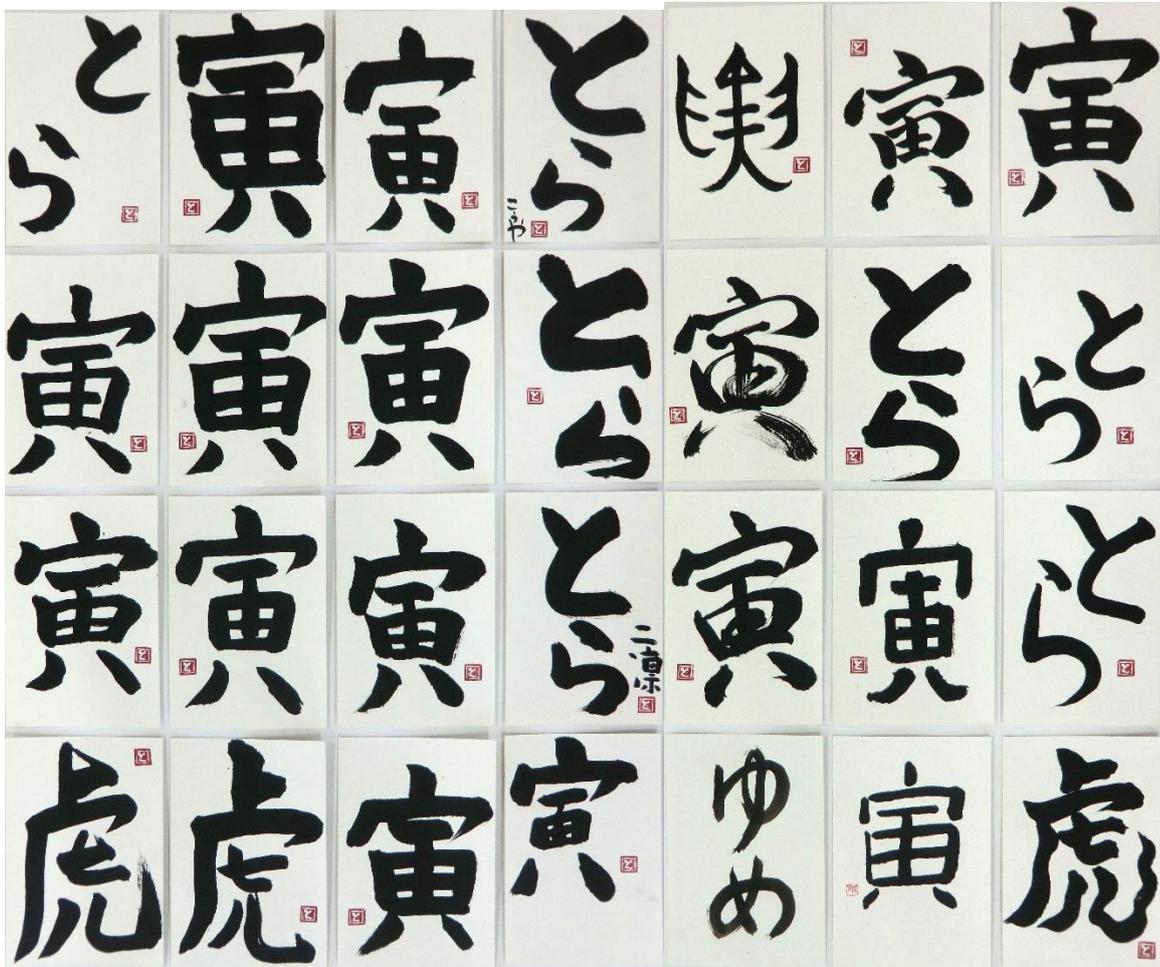 とら
寅
寅
とら
こうや
寅
寅
寅
寅
寅
寅
とら
寅
とら
とら
寅
寅
寅
とら
二凛
寅
寅
とら
虎
虎
寅
寅
ゆめ
寅
虎